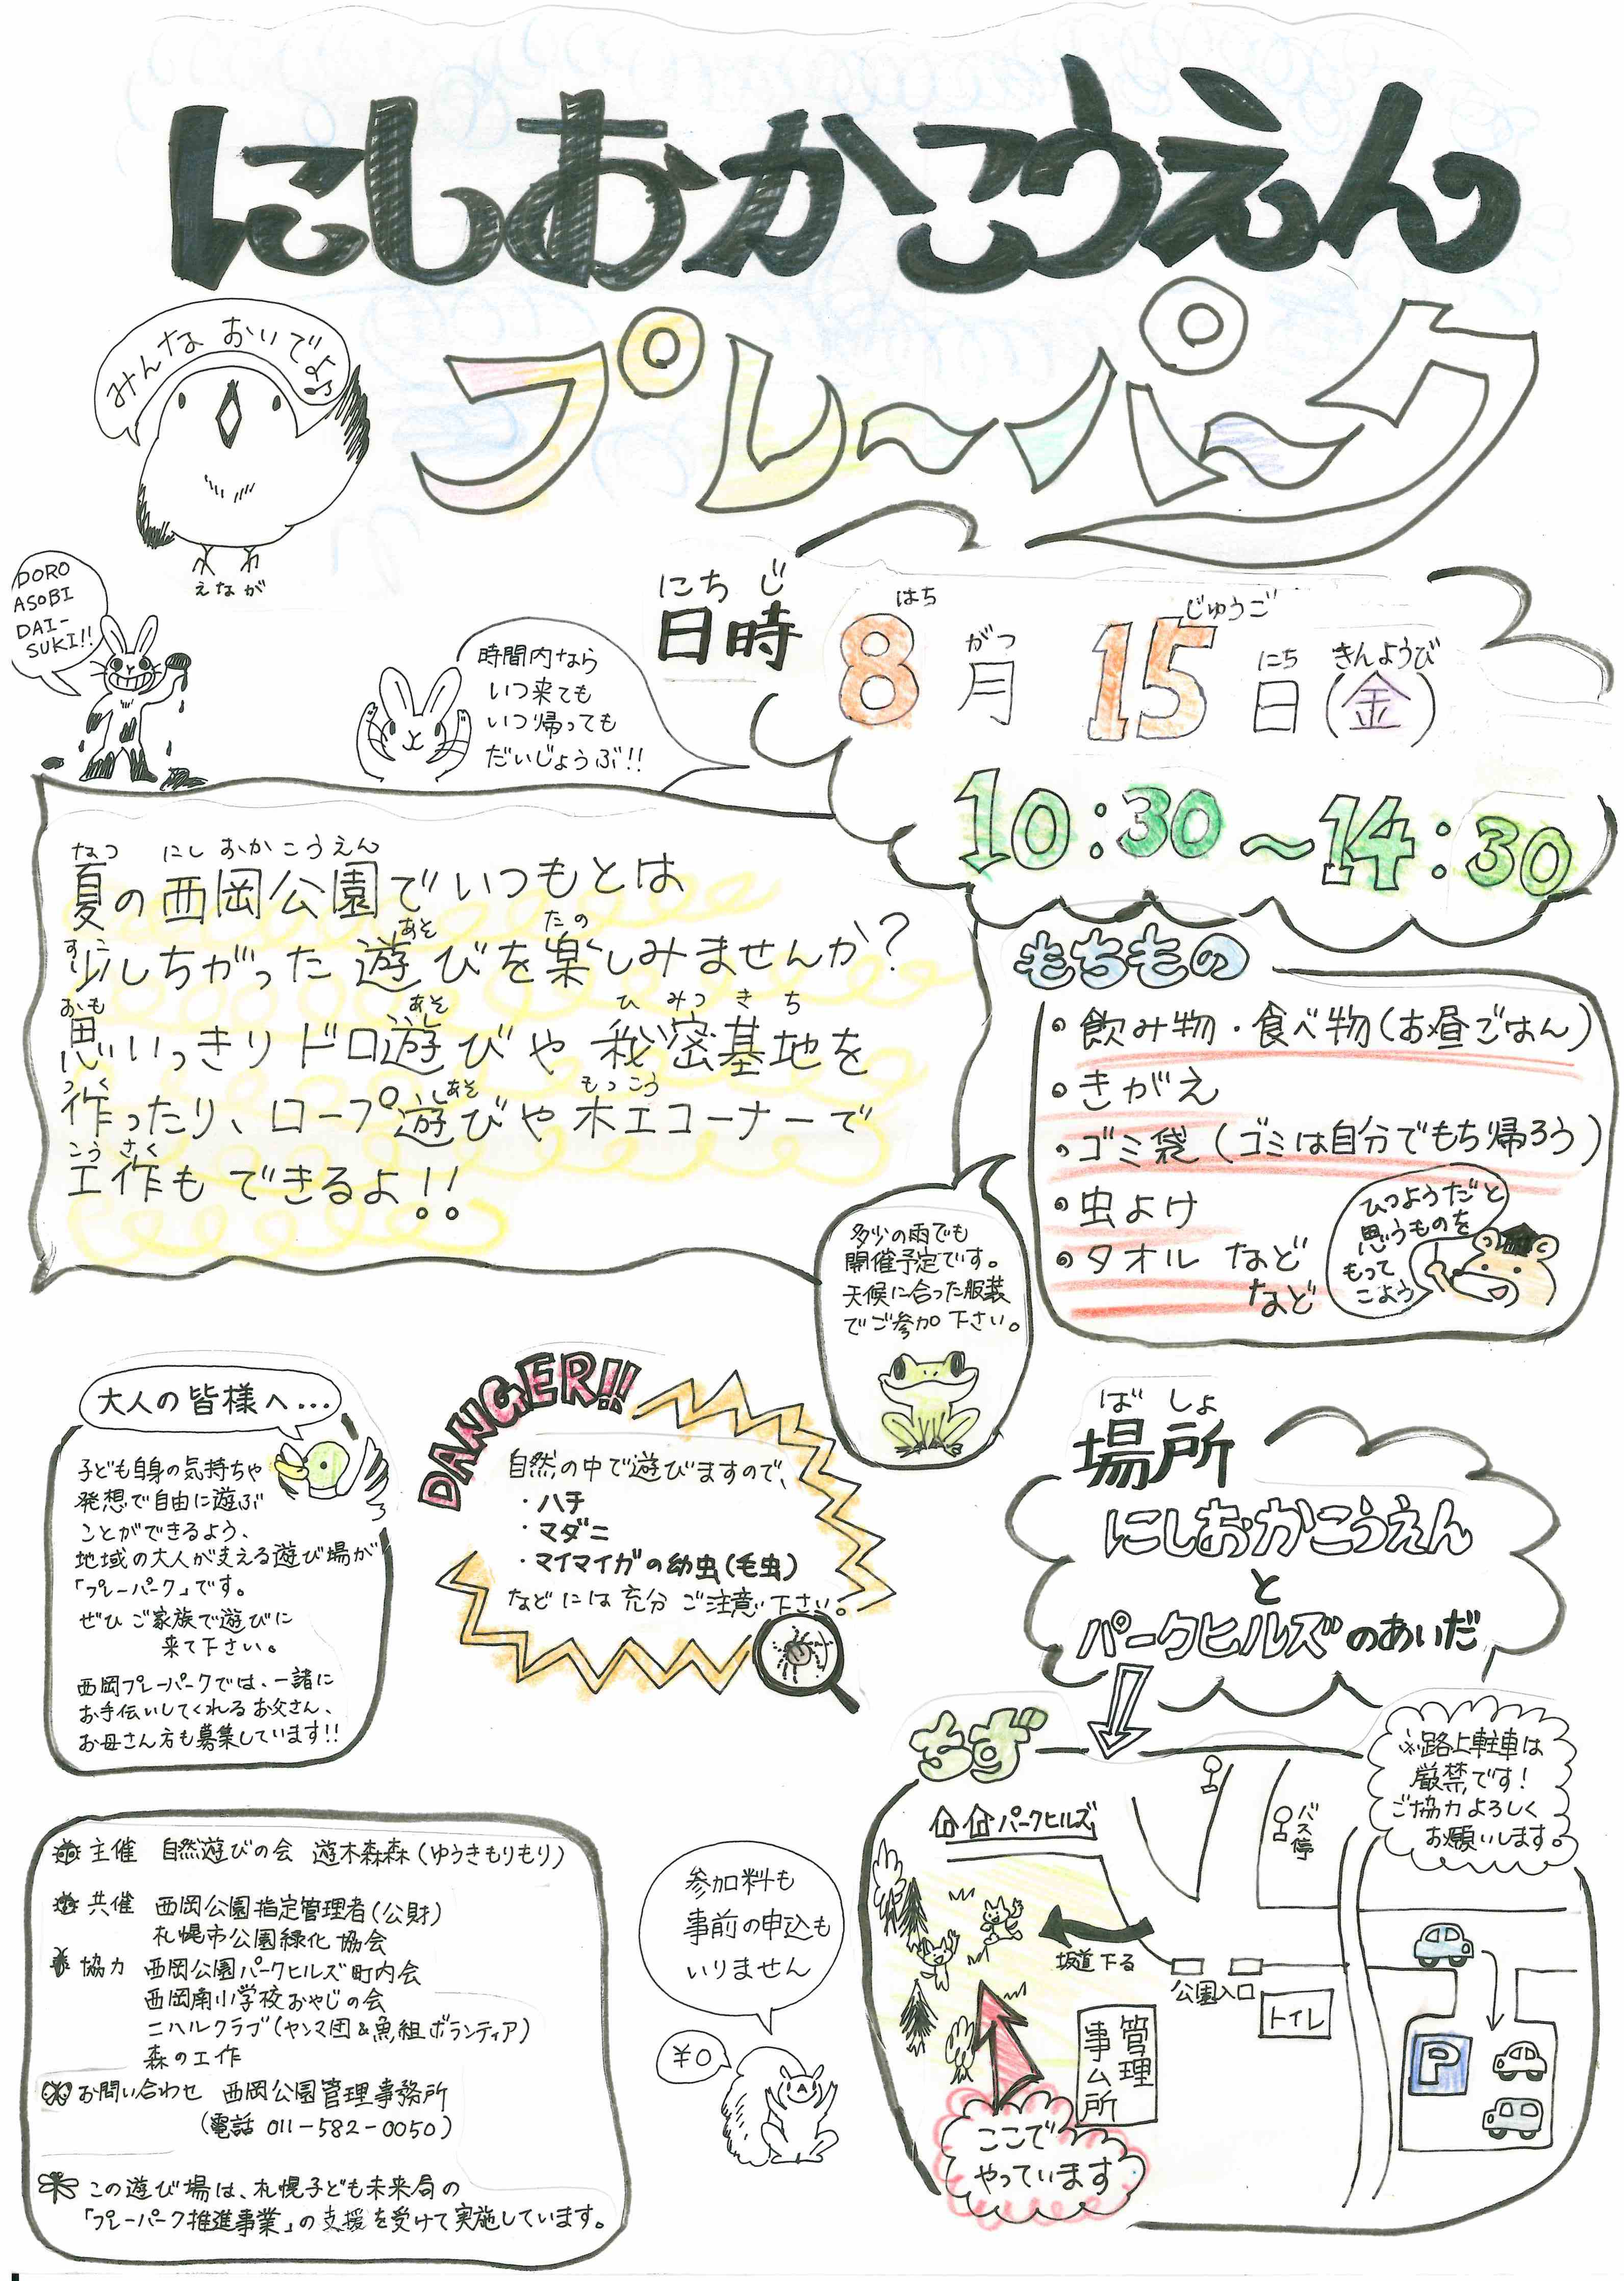 にしおかこうえん
プレーパーク
みんな おいでよ♪
えなが
DORO
ASOBI
DAI-
SUKI!!
時間内なら
いつ来ても
いつ帰っても
だいじょうぶ!!
にちじ
日時
はち がつ じゅうご にち きんようび
8月15日(金)
10:30～14:30
なつ にしおかこうえん
夏の西岡公園でいつもとは
すこ あそ たの
少しちがった遊びを楽しみませんか?
おも あそ ひみつきち
思いっきりドロ遊びや秘密基地を
つく あそ もっこう
作ったり、ロープ遊びや木工コーナーで
こうさく
工作もできるよ!!
もちもの
・飲み物・食べ物(お昼ごはん)
・きがえ
・ゴミ袋(ゴミは自分でもち帰ろう)
・虫よけ
・タオル など
など
ひつようだと
思うものを
もって
こよう
多少の雨でも
開催予定です。
天候に合った服装
でご参加下さい。
大人の皆様へ...
子ども自身の気持ちや
発想で自由に遊ぶ
ことができるよう、
地域の大人が支える遊び場が
「プレーパーク」です。
ぜひご家族で遊びに
来て下さい。
西岡プレーパークでは、一緒に
お手伝いしてくれるお父さん、
お母さん方も募集しています!!
DANGER!!
自然の中で遊びますので、
・ハチ
・マダニ
・マイマイガの幼虫(毛虫)
などには充分ご注意下さい。
ばしょ
場所
にしおかこうえん
と
パークヒルズのあいだ
ちず
※路上駐車は
厳禁です!
ご協力よろしく
お願いします。
パークヒルズ
バス停
坂道下る
公園入口
トイレ
管理
事ム所
P
ここで
やっています
主催 自然遊びの会 遊木森森(ゆうきもりもり)
共催 西岡公園指定管理者(公財)
札幌市公園緑化協会
協力 西岡公園パークヒルズ町内会
西岡南小学校おやじの会
ニハルクラブ(ヤンマ団&魚組ボランティア)
森の工作
お問い合わせ 西岡公園管理事務所
(電話 011-582-0050)
この遊び場は、札幌子ども未来局の
「プレーパーク推進事業」の支援を受けて実施しています。
参加料も
事前の申込も
いりません
¥0